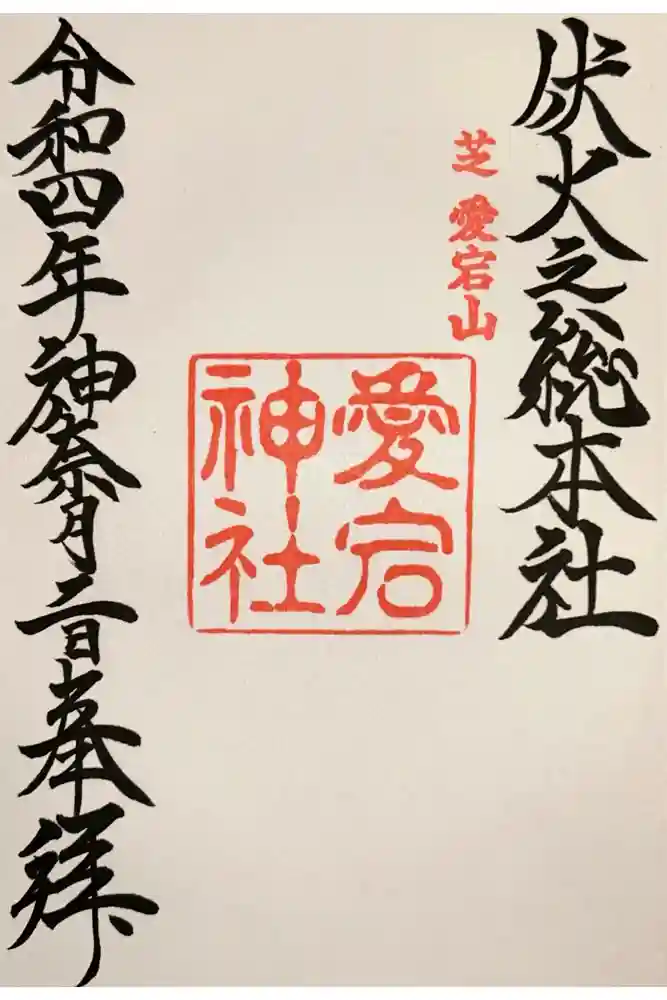 伏火之総本社
芝 愛宕山
愛宕
神社
令和四年神奈月二日奉拝